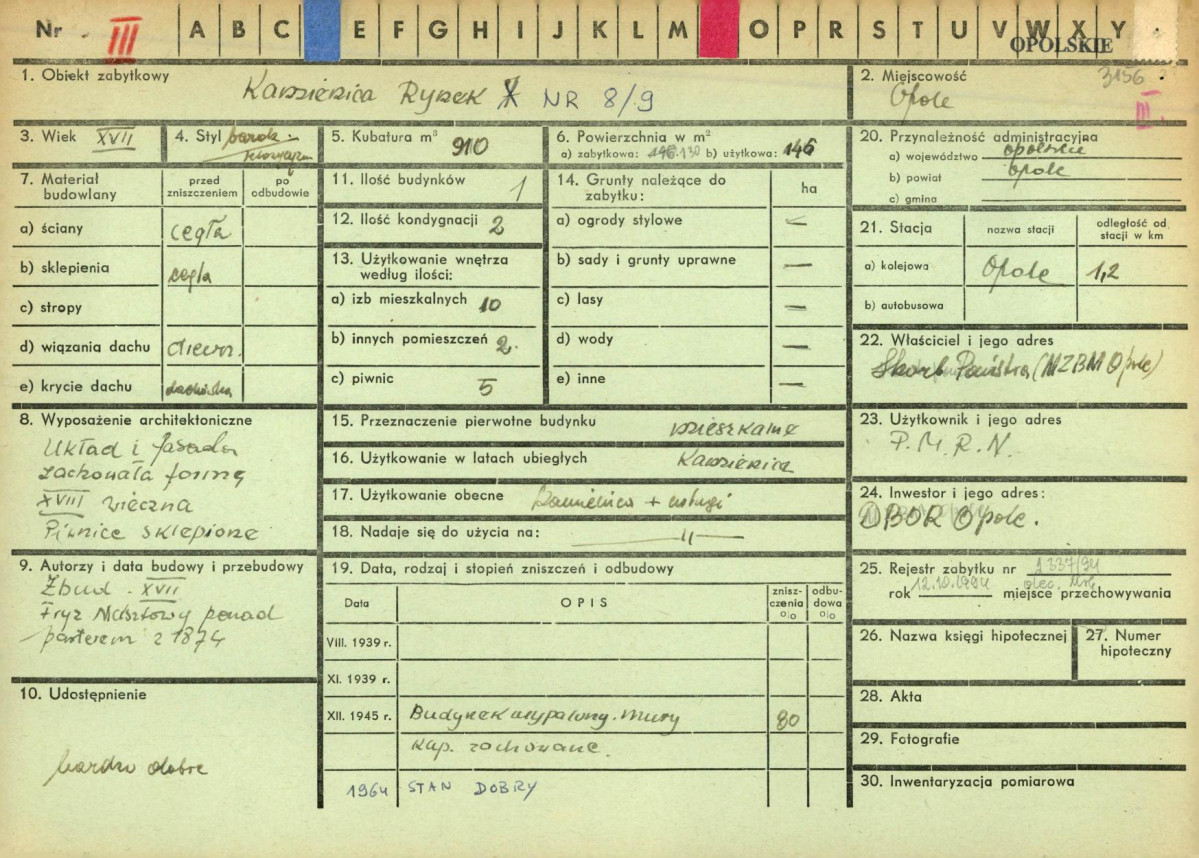 Nr III A B C E F G H I J K L M O P R S T U V W X Y
OPOLSKIE
1. Obiekt zabytkowy
Kamienica Rynek NR 8/9
2. Miejscowość 3156
Opole
III
3. Wiek XVII
4. Styl barok
5. Kubatura m³ 910
6. Powierzchnia w m²
a) zabytkowa: 146.130 b) użytkowa: 146
20. Przynależność administracyjna
a) województwo opolskie
b) powiat Opole
c) gmina
7. Materiał budowlany
przed zniszczeniem
po odbudowie
a) ściany cegła
b) sklepienia cegła
c) stropy
d) wiązania dachu drewn.
e) krycie dachu dachówka
11. Ilość budynków 1
12. Ilość kondygnacji 2
13. Użytkowanie wnętrza
według ilości:
a) izb mieszkalnych 10
b) innych pomieszczeń 2.
c) piwnic 5
14. Grunty należące do
zabytku:
ha
a) ogrody stylowe —
b) sady i grunty uprawne —
c) lasy —
d) wody —
e) inne —
21. Stacja
nazwa stacji
odległość od
stacji w km
a) kolejowa Opole 1,2
b) autobusowa
22. Właściciel i jego adres
Skarb Państwa (MZBM Opole)
8. Wyposażenie architektoniczne
Układ i fasada
zachowała formę
XVIII wieczną
Piwnice sklepione
15. Przeznaczenie pierwotne budynku mieszkalne
16. Użytkowanie w latach ubiegłych Kamienica
17. Użytkowanie obecne Kamienica + usługi
18. Nadaje się do użycia na: — " —
23. Użytkownik i jego adres
P.M.R.N.
24. Inwestor i jego adres:
DBOR Opole.
9. Autorzy i data budowy i przebudowy
Zbud. XVII
Fryz Masztowy ponad
parterem z 1874
19. Data, rodzaj i stopień zniszczeń i odbudowy
Data
OPIS
znisz-
czenia
%
odbu-
dowa
%
VIII. 1939 r.
XI. 1939 r.
XII. 1945 r. Budynek wypalony. Mury 80
kap. zachowane.
1964 STAN DOBRY
25. Rejestr zabytku nr 2337/94
rok 12.10.1994 miejsce przechowywania
26. Nazwa księgi hipotecznej
27. Numer
hipoteczny
10. Udostępnienie
bardzo dobre
28. Akta
29. Fotografie
30. Inwentaryzacja pomiarowa